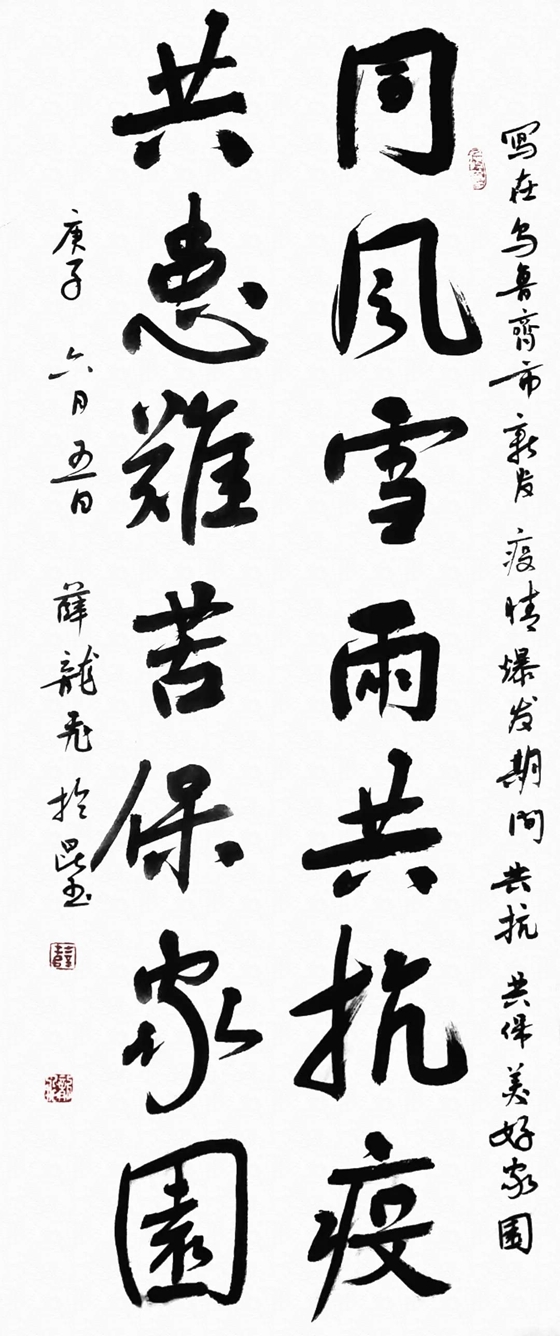 寫在乌魯齊市新发疫情爆发期间共抗共保美好家園
同風雪雨共抗疫
共患難苦保家園
庚子六月五日薛龍飛於昆玉
薛